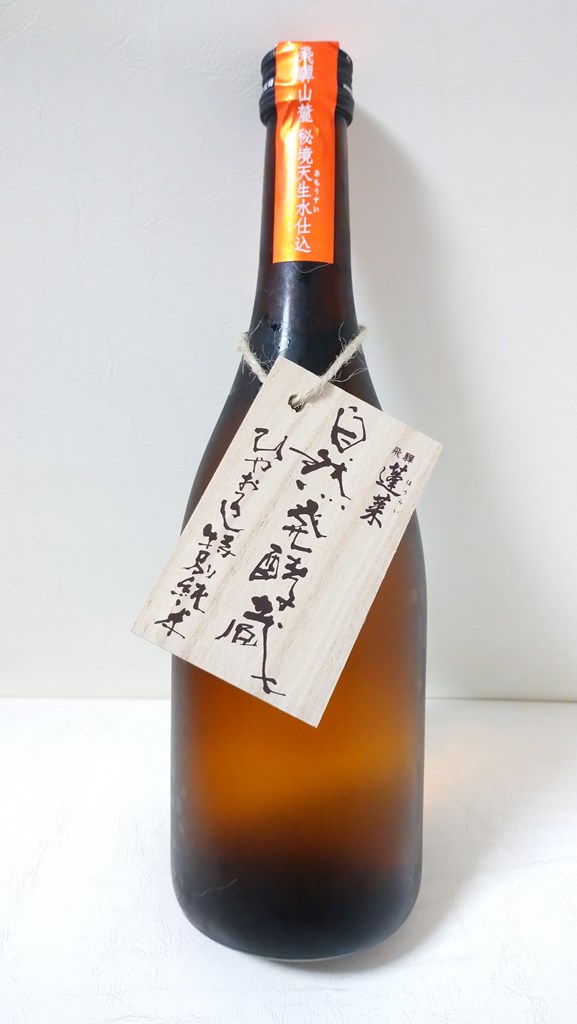 飛騨山麓 秘境天生水仕込
あもうすい
飛騨
蓬莱
ほうらい
自然発酵蔵
ひやおろし 特別純米